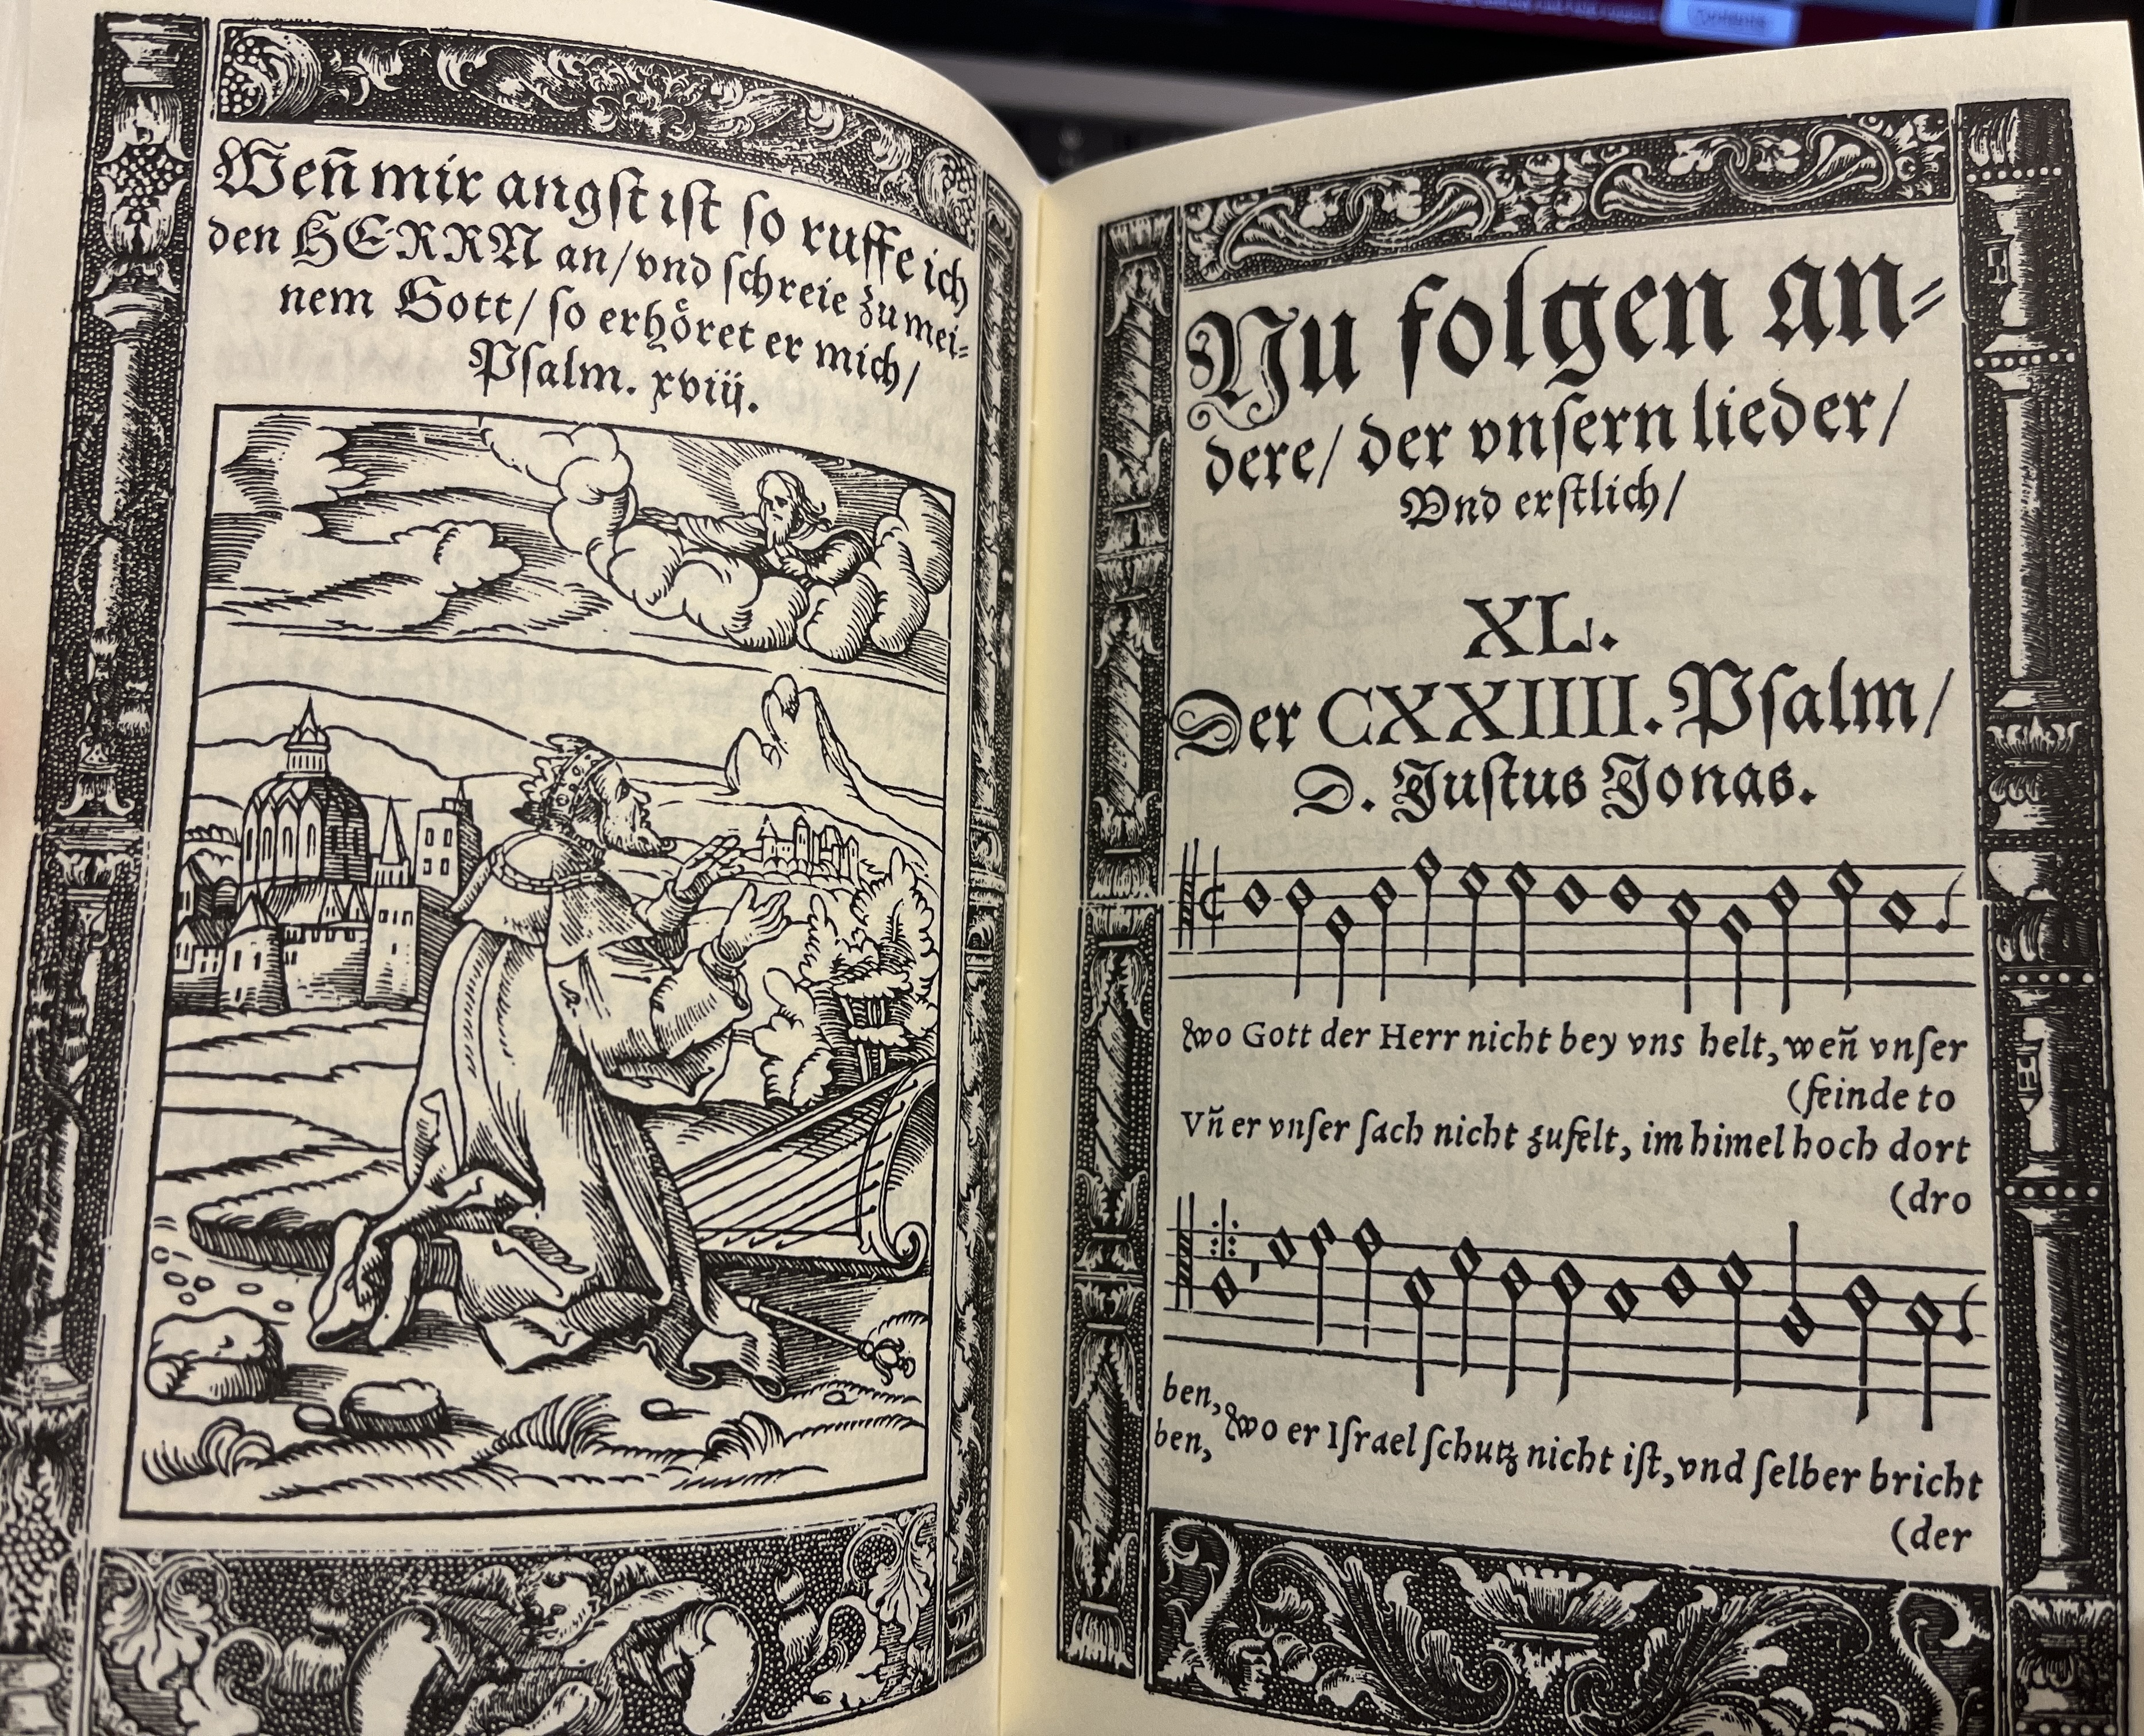 Contents
Weñ mir angſt iſt ſo ruffe ich
den HERRN an/vnd ſchreie zu mei⸗
nem Gott/ ſo erhöret er mich/
Pſalm. xviij.
Nu folgen an⸗
dere/ der vnſern lieder/
Vnd erſtlich/
XL.
Der CXXIIII. Pſalm/
D. Juſtus Jonas.
Wo Gott der Herr nicht bey vns helt, weñ vnſer
(feinde to
Vñ er vnſer ſach nicht zufelt, im himel hoch dort
(dro
ben,
ben, Wo er Iſrael ſchutz nicht iſt, vnd ſelber bricht
(der